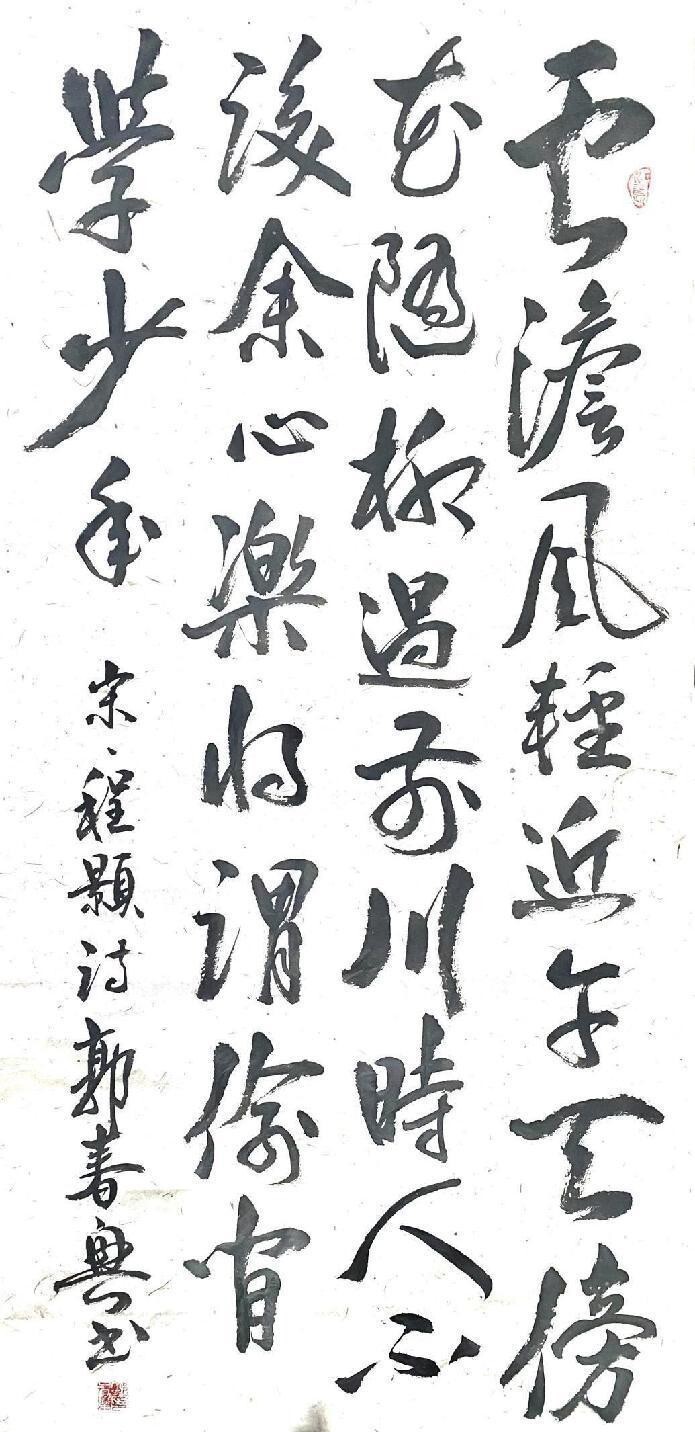 雲澹風輕近午天傍
花隨柳過前川時人不
識余心樂将謂偷閒
學少年 宋、程顥诗郭春興书